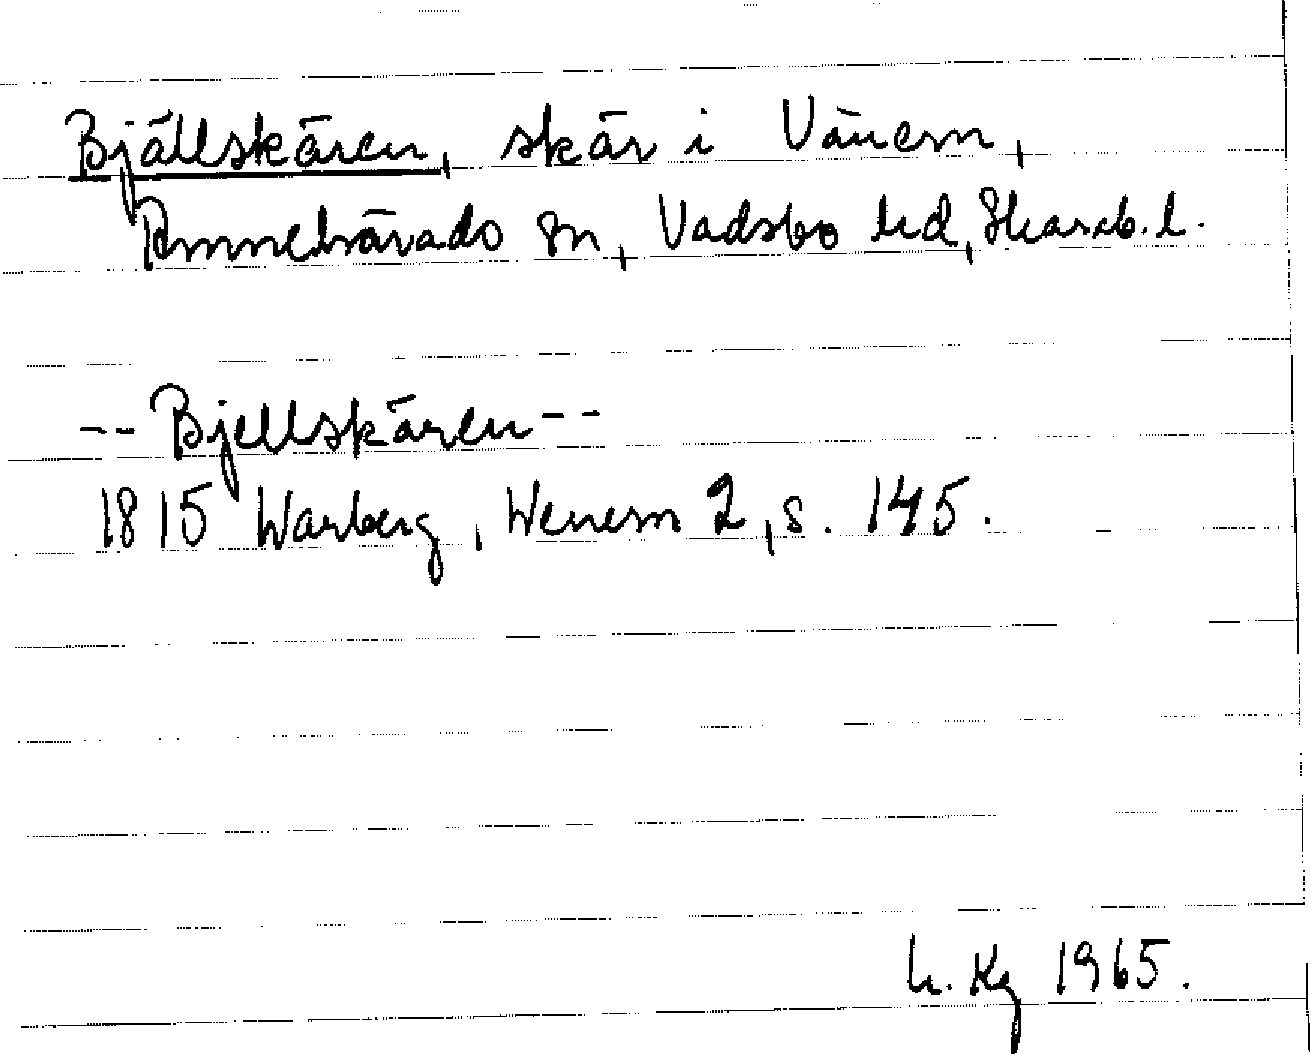 Bjällskären, skär i Vänern,
Amnehärads sn, Vadsbo hd, Skarab. l.
-- Bjellskären --
1815 Warberg, Wenern 2, s. 145.
h. Kg 1965.